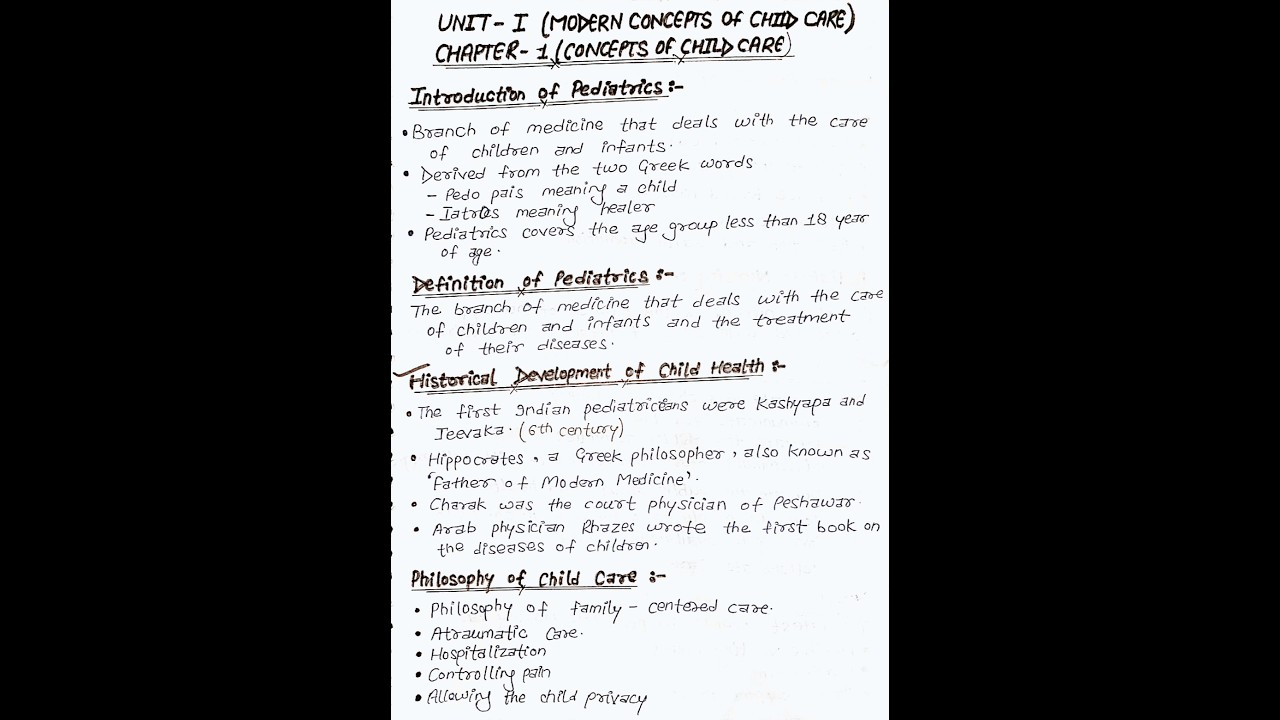 UNIT- I (MODERN CONCEPTS OF CHILD CARE)
CHAPTER- 1 (CONCEPTS OF CHILD CARE)
Introduction of Pediatrics :-
• Branch of medicine that deals with the care
of children and infants.
• Derived from the two Greek words
- Pedo pais meaning a child
- Iatros meaning healer
• Pediatrics covers the age group less than 18 year
of age.
Definition of Pediatrics :-
The branch of medicine that deals with the care
of children and infants and the treatment
of their diseases.
Historical Development of Child Health :-
• The first Indian pediatricians were Kashyapa and
Jeevaka. (6th century)
• Hippocrates, a Greek philosopher, also known as
'Father of Modern Medicine'.
• Charak was the court physician of Peshawar.
• Arab physician Rhazes wrote the first book on
the diseases of children.
Philosophy of Child Care :-
• Philosophy of family - centered care.
• Atraumatic Care.
• Hospitalization
• Controlling pain
• Allowing the child privacy